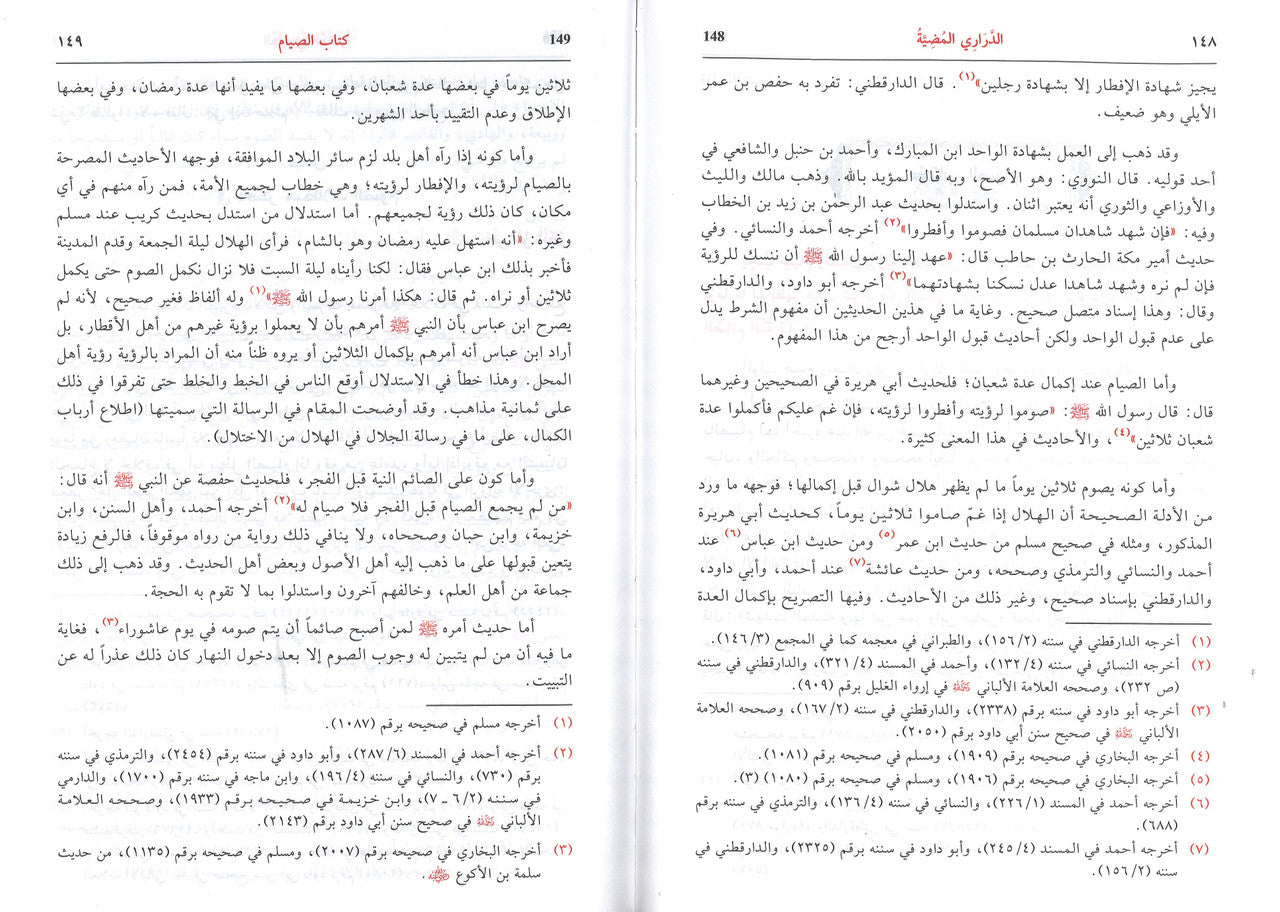 ١٤٨ الدَّرَارِي المُضِيَّةُ 148
يجيز شهادة الإفطار إلا بشهادة رجلين»(١). قال الدارقطني: تفرد به حفص بن عمر
الأيلي وهو ضعيف.
وقد ذهب إلى العمل بشهادة الواحد ابن المبارك، وأحمد بن حنبل والشافعي في
أحد قوليه. قال النووي: وهو الأصح، وبه قال المؤيد بالله. وذهب مالك والليث
والأوزاعي والثوري أنه يعتبر اثنان. واستدلوا بحديث عبد الرحمن بن زيد بن الخطاب
وفيه: «فإن شهد شاهدان مسلمان فصوموا وأفطروا»(٢) أخرجه أحمد والنسائي. وفي
حديث أمير مكة الحارث بن حاطب قال: «عهد إلينا رسول الله ﷺ أن ننسك للرؤية
فإن لم نره وشهد شاهدا عدل نسكنا بشهادتهما»(٣) أخرجه أبو داود، والدارقطني
وقال: وهذا إسناد متصل صحيح. وغاية ما في هذين الحديثين أن مفهوم الشرط يدل
على عدم قبول الواحد ولكن أحاديث قبول الواحد أرجح من هذا المفهوم.
وأما الصيام عند إكمال عدة شعبان؛ فلحديث أبي هريرة في الصحيحين وغيرهما
قال: قال رسول الله ﷺ: «صوموا لرؤيته وأفطروا لرؤيته، فإن غم عليكم فأكملوا عدة
شعبان ثلاثين»(٤)، والأحاديث في هذا المعنى كثيرة.
وأما كونه يصوم ثلاثين يوماً ما لم يظهر هلال شوال قبل إكمالها؛ فوجهه ما ورد
من الأدلة الصحيحة أن الهلال إذا غمّ صاموا ثلاثين يوماً، كحديث أبي هريرة
المذكور، ومثله في صحيح مسلم من حديث ابن عمر(٥) ومن حديث ابن عباس(٦) عند
أحمد والنسائي والترمذي وصححه، ومن حديث عائشة(٧) عند أحمد، وأبي داود،
والدارقطني بإسناد صحيح، وغير ذلك من الأحاديث. وفيها التصريح بإكمال العدة
(١) أخرجه الدارقطني في سننه (٢/ ١٥٦)، والطبراني في معجمه كما في المجمع (٣/ ١٤٦).
(٢) أخرجه النسائي في سننه (٤/ ١٣٢)، وأحمد في المسند (٤/ ٣٢١)، والدارقطني في سننه
(ص ٢٣٢)، وصححه العلامة الألباني رحمه الله في إرواء الغليل برقم (٩٠٩).
(٣) أخرجه أبو داود في سننه برقم (٢٣٣٨)، والدارقطني في سننه (٢/ ١٦٧)، وصححه العلامة
الألباني رحمه الله في صحيح سنن أبي داود برقم (٢٠٥٠).
(٤) أخرجه البخاري في صحيحه برقم (١٩٠٩)، ومسلم في صحيحه برقم (١٠٨١).
(٥) أخرجه البخاري في صحيحه برقم (١٩٠٦)، ومسلم في صحيحه برقم (١٠٨٠) (٣).
(٦) أخرجه أحمد في المسند (١/ ٢٢٦)، والنسائي في سننه (٤/ ١٣٦)، والترمذي في سننه برقم
(٦٨٨).
(٧) أخرجه أحمد في المسند (٤/ ٢٤٥)، وأبو داود في سننه برقم (٢٣٢٥)، والدارقطني في
سننه (٢/ ١٥٦).
149 كتاب الصيام ١٤٩
ثلاثين يوماً في بعضها عدة شعبان، وفي بعضها ما يفيد أنها عدة رمضان، وفي بعضها
الإطلاق وعدم التقييد بأحد الشهرين.
وأما كونه إذا رآه أهل بلد لزم سائر البلاد الموافقة، فوجهه الأحاديث المصرحة
بالصيام لرؤيته، والإفطار لرؤيته؛ وهي خطاب لجميع الأمة، فمن رآه منهم في أي
مكان، كان ذلك رؤية لجميعهم. أما استدلال من استدل بحديث كريب عند مسلم
وغيره: «أنه استهل عليه رمضان وهو بالشام، فرأى الهلال ليلة الجمعة وقدم المدينة
فأخبر بذلك ابن عباس فقال: لكنا رأيناه ليلة السبت فلا نزال نكمل الصوم حتى يكمل
ثلاثين أو نراه. ثم قال: هكذا أمرنا رسول الله ﷺ»(١) وله ألفاظ فغير صحيح، لأنه لم
يصرح ابن عباس بأن النبي ﷺ أمرهم بأن لا يعملوا برؤية غيرهم من أهل الأقطار، بل
أراد ابن عباس أنه أمرهم بإكمال الثلاثين أو يروه ظناً منه أن المراد بالرؤية رؤية أهل
المحل. وهذا خطأ في الاستدلال أوقع الناس في الخبط والخلط حتى تفرقوا في ذلك
على ثمانية مذاهب. وقد أوضحت المقام في الرسالة التي سميتها (اطلاع أرباب
الكمال، على ما في رسالة الجلال في الهلال من الاختلال).
وأما كون على الصائم النية قبل الفجر، فلحديث حفصة عن النبي ﷺ أنه قال:
«من لم يجمع الصيام قبل الفجر فلا صيام له»(٢) أخرجه أحمد، وأهل السنن، وابن
خزيمة، وابن حبان وصححاه، ولا ينافي ذلك رواية من رواه موقوفاً، فالرفع زيادة
يتعين قبولها على ما ذهب إليه أهل الأصول وبعض أهل الحديث. وقد ذهب إلى ذلك
جماعة من أهل العلم، وخالفهم آخرون واستدلوا بما لا تقوم به الحجة.
أما حديث أمره ﷺ لمن أصبح صائماً أن يتم صومه في يوم عاشوراء(٣)، فغاية
ما فيه أن من لم يتبين له وجوب الصوم إلا بعد دخول النهار كان ذلك عذراً له عن
التبييت.
(١) أخرجه مسلم في صحيحه برقم (١٠٨٧).
(٢) أخرجه أحمد في المسند (٦/ ٢٨٧)، وأبو داود في سننه برقم (٢٤٥٤)، والترمذي في سننه
برقم (٧٣٠)، والنسائي في سننه (٤/ ١٩٦)، وابن ماجه في سننه برقم (١٧٠٠)، والدارمي
في سننه (٢/ ٦ - ٧)، وابن خزيمة في صحيحه برقم (١٩٣٣)، وصححه العلامة
الألباني رحمه الله في صحيح سنن أبي داود برقم (٢١٤٣).
(٣) أخرجه البخاري في صحيحه برقم (٢٠٠٧)، ومسلم في صحيحه برقم (١١٣٥)، من حديث
سلمة بن الأكوع رضي الله عنه.